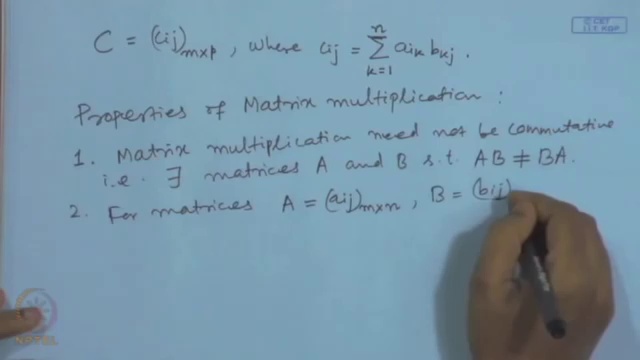 © CET
I.I.T. KGP
C = (cij)m×p , where cij = n∑k=1 aik bkj .
Properties of Matrix multiplication :
1. Matrix multiplication need not be commutative
i.e. ∃ matrices A and B s.t. AB ≠ BA.
2. For matrices A = (aij)m×n , B = (bij)
NPTEL